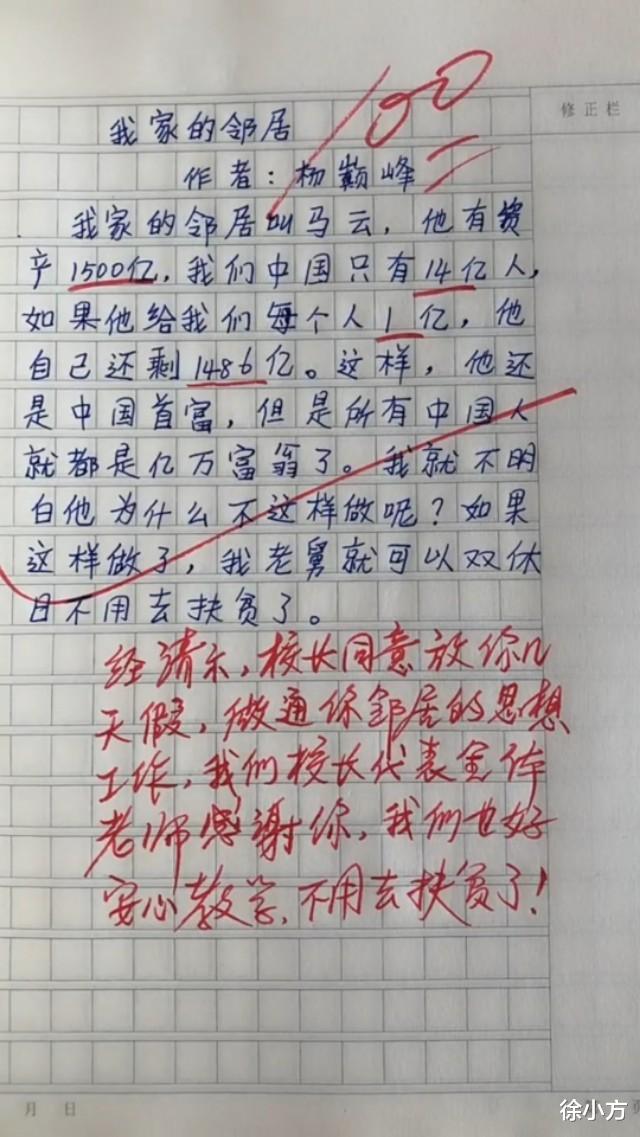 100
修正栏
我家的邻居
作者：杨巅峰
我家的邻居叫马云，他有资
产1500亿，我们中国只有14亿人，
如果他给我们每个人1亿，他
自己还剩1486亿。这样，他还
是中国首富，但是所有中国人
就都是亿万富翁了。我就不明
白他为什么不这样做呢？如果
这样做了，我老舅就可以双休
日不用去扶贫了。
经请示，校长同意放你几
天假，做通你邻居的思想
工作，我们校长代表全体
老师感谢你，我们也好
安心教学，不用去扶贫了！
月 日
徐小方